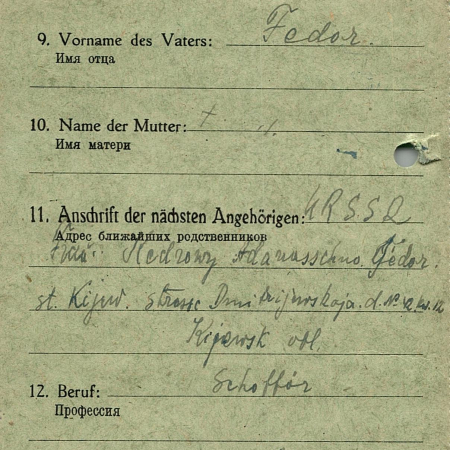 9. Vorname des Vaters: Fedor.
Имя отца
10. Name der Mutter: +
Имя матери
11. Anschrift der nächsten Angehörigen: URSSR
Адрес ближайших родственников
Frau: Fedor.
st. Kijew. strasse Dmitrijewskaja. d. № 12
Kijewsk obl.
12. Beruf: Schofför
Профессия